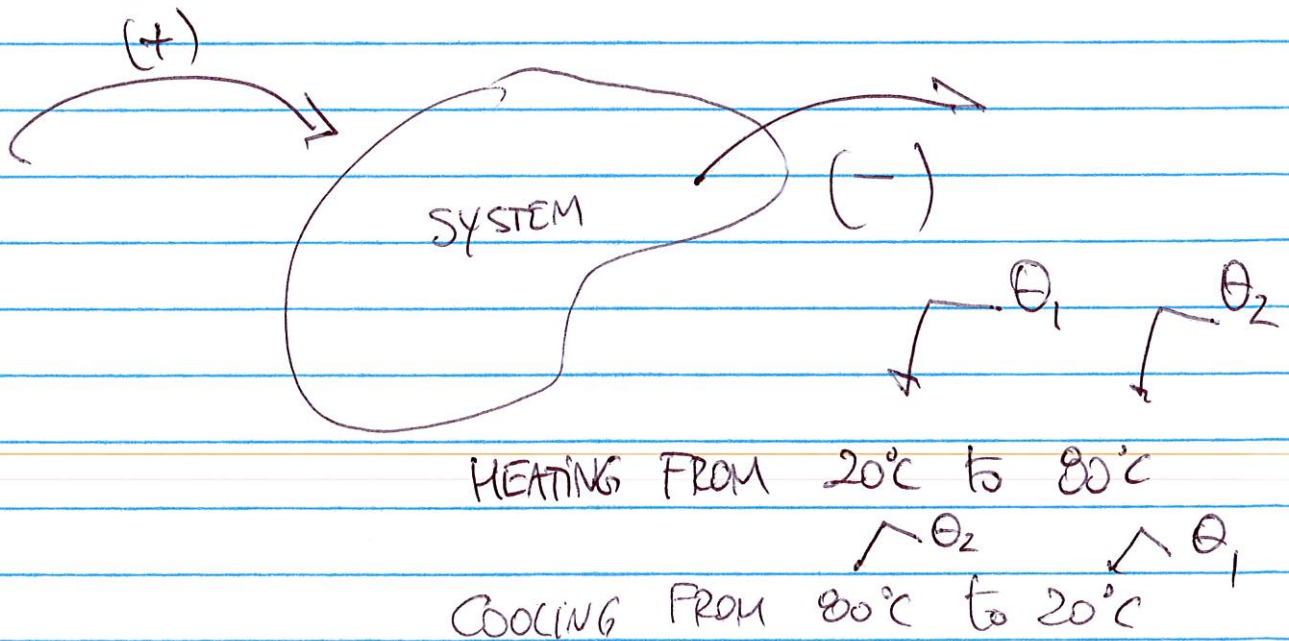 (+)
(-)
SYSTEM
θ₁ θ₂
HEATING FROM 20°C to 80°C
θ₂ θ₁
COOLING FROM 80°C to 20°C